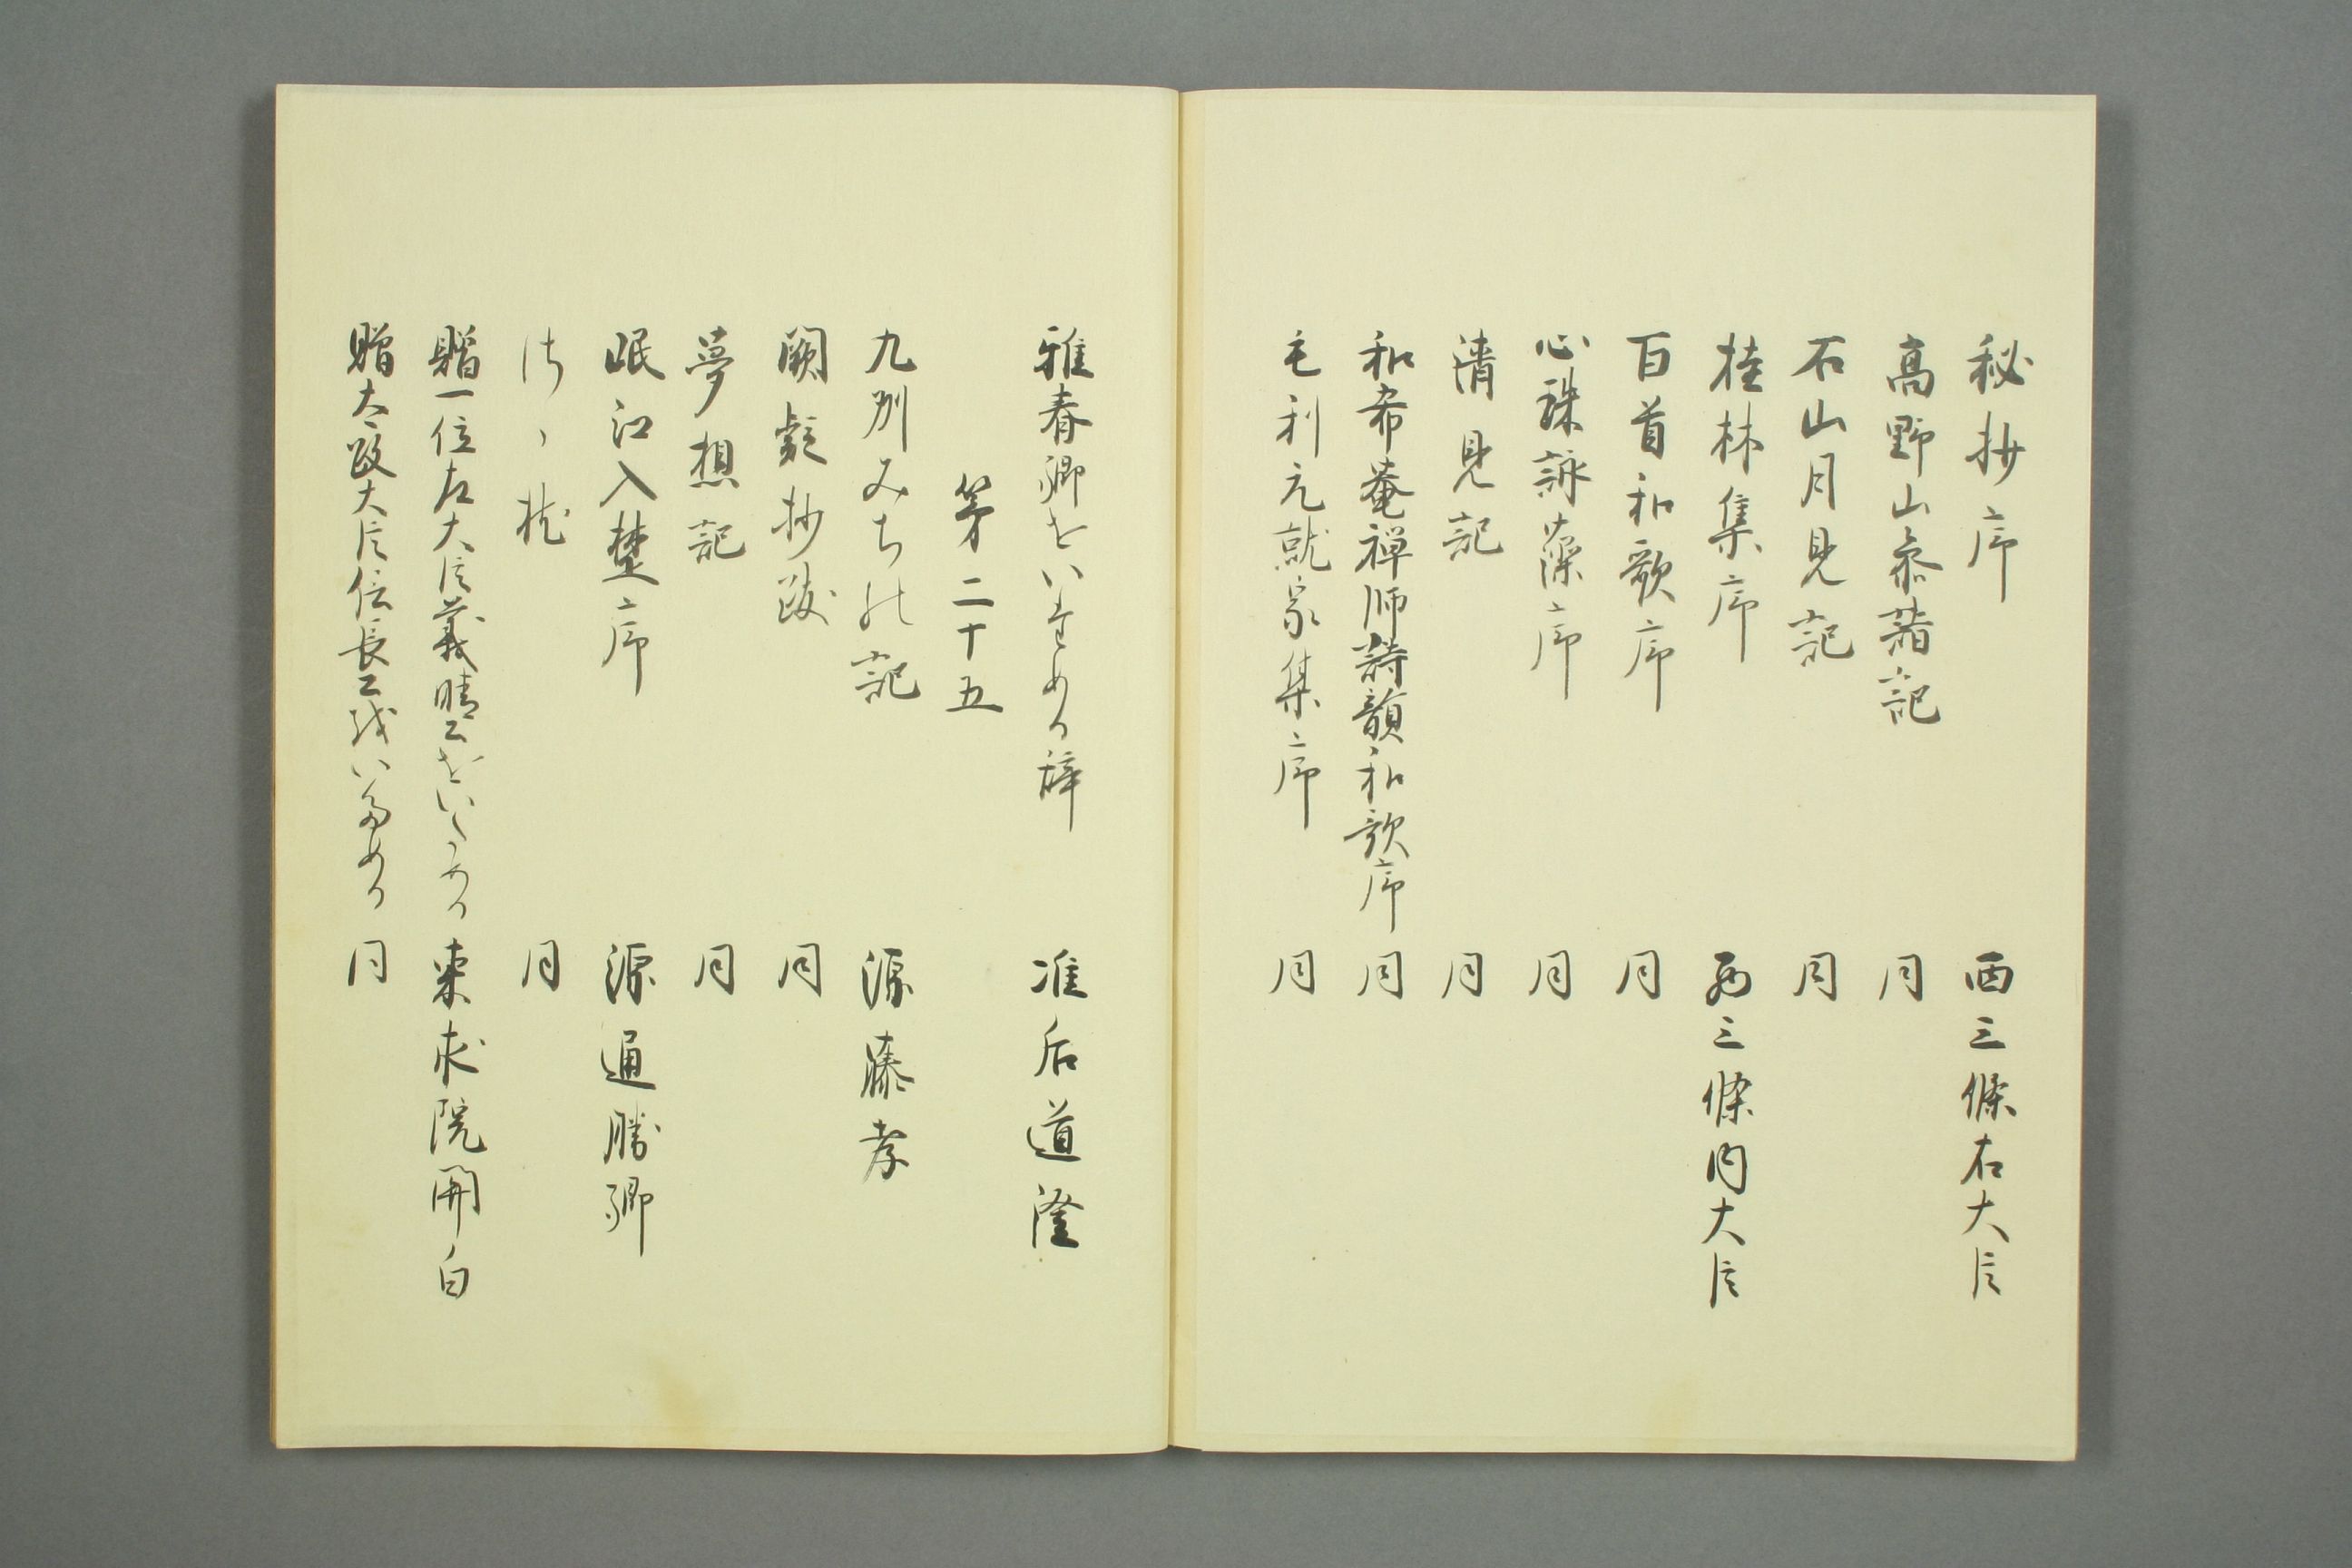 秘抄序 西三條右大臣
高野山参詣記 同
石山月見記 同
桂林集序 西三條内大臣
百首和歌序 同
心珠詠藻序 同
清見記 同
和希菴禅師詩韻和歌序 同
毛利元就家集序 同
雅春卿をいためる辞 准后道澄
第二十五
九州みちの記 源藤孝
闕疑抄跋 同
夢想記 同
岷江入楚序 源通勝卿
同
贈一位左大臣義晴公をいためる 東求院関白
贈太政大臣信長公越いためる 同